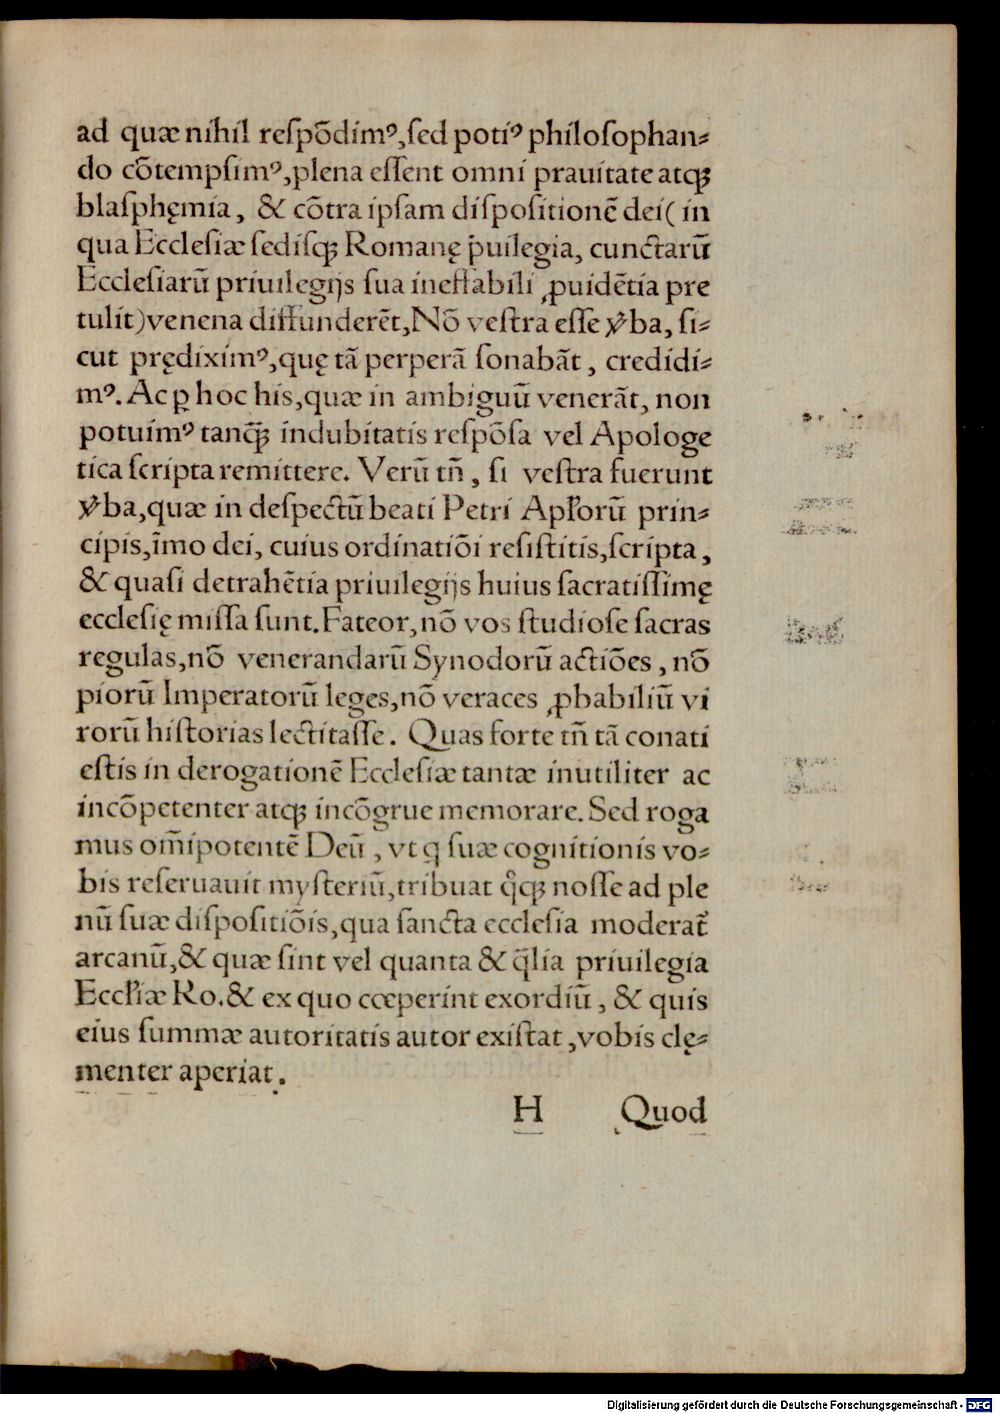 ad quæ nihil reſpõdimꝰ,ſed potiꝰ philoſophan⸗
do cõtempſimꝰ,plena eſſent omni prauitate atqꝫ
blaſphęmia, & cõtra ipſam diſpoſitionẽ dei( in
qua Eccleſiæ ſediſqꝫ Romanę p̃uilegia, cunctarũ
Eccleſiarũ priuilegijs ſua ineffabili ꝓuidẽtia pre
tulit)venena diffunderẽt,Nõ veſtra eſſe v̓ba, ſi⸗
cut prędiximꝰ,quę tã perperã ſonabãt, credidi⸗
mꝰ. Ac ꝑ hoc his,quæ in ambiguũ venerãt, non
potuimꝰ tanqꝫ̃ indubitatis reſpõſa vel Apologe
tica ſcripta remittere. Verũ tñ, ſi veſtra fuerunt
v̓ba,quæ in deſpectũ beati Petri Apl̓orũ prin⸗
cipis,ĩmo dei, cuius ordinatiõi reſiſtitis,ſcripta,
& quaſi detrahẽtia priuilegijs huius ſacratiſſimę
eccleſię miſſa ſunt.Fateor,nõ vos ſtudioſe ſacras
regulas,nõ venerandarũ Synodorũ actiões, nõ
piorũ Imperatorũ leges,nõ veraces ꝓbabiliũ vi
rorũ hiſtorias lectitaſſe. Quas forte tñ tã conati
eſtis in derogationẽ Eccleſiæ tantæ inutiliter ac
incõpetenter atqꝫ incõgrue memorare. Sed roga
mus om̃ipotentẽ Deũ, vt ꝗ ſuæ cognitionis vo⸗
bis reſeruauit myſteriũ,tribuat qͥqꝫ noſſe ad ple
nũ ſuæ diſpoſitiõis,qua ſancta eccleſia moderat̃
arcanũ,& quæ ſint vel quanta & q̃lia priuilegia
Eccl̓iæ Ro.& ex quo cœperint exordiũ, & quis
eius ſummæ autoritatis autor exiſtat,vobis clę⸗
menter aperiat.
H Quod
Digitalisierung gefördert durch die Deutsche Forschungsgemeinschaft - DFG